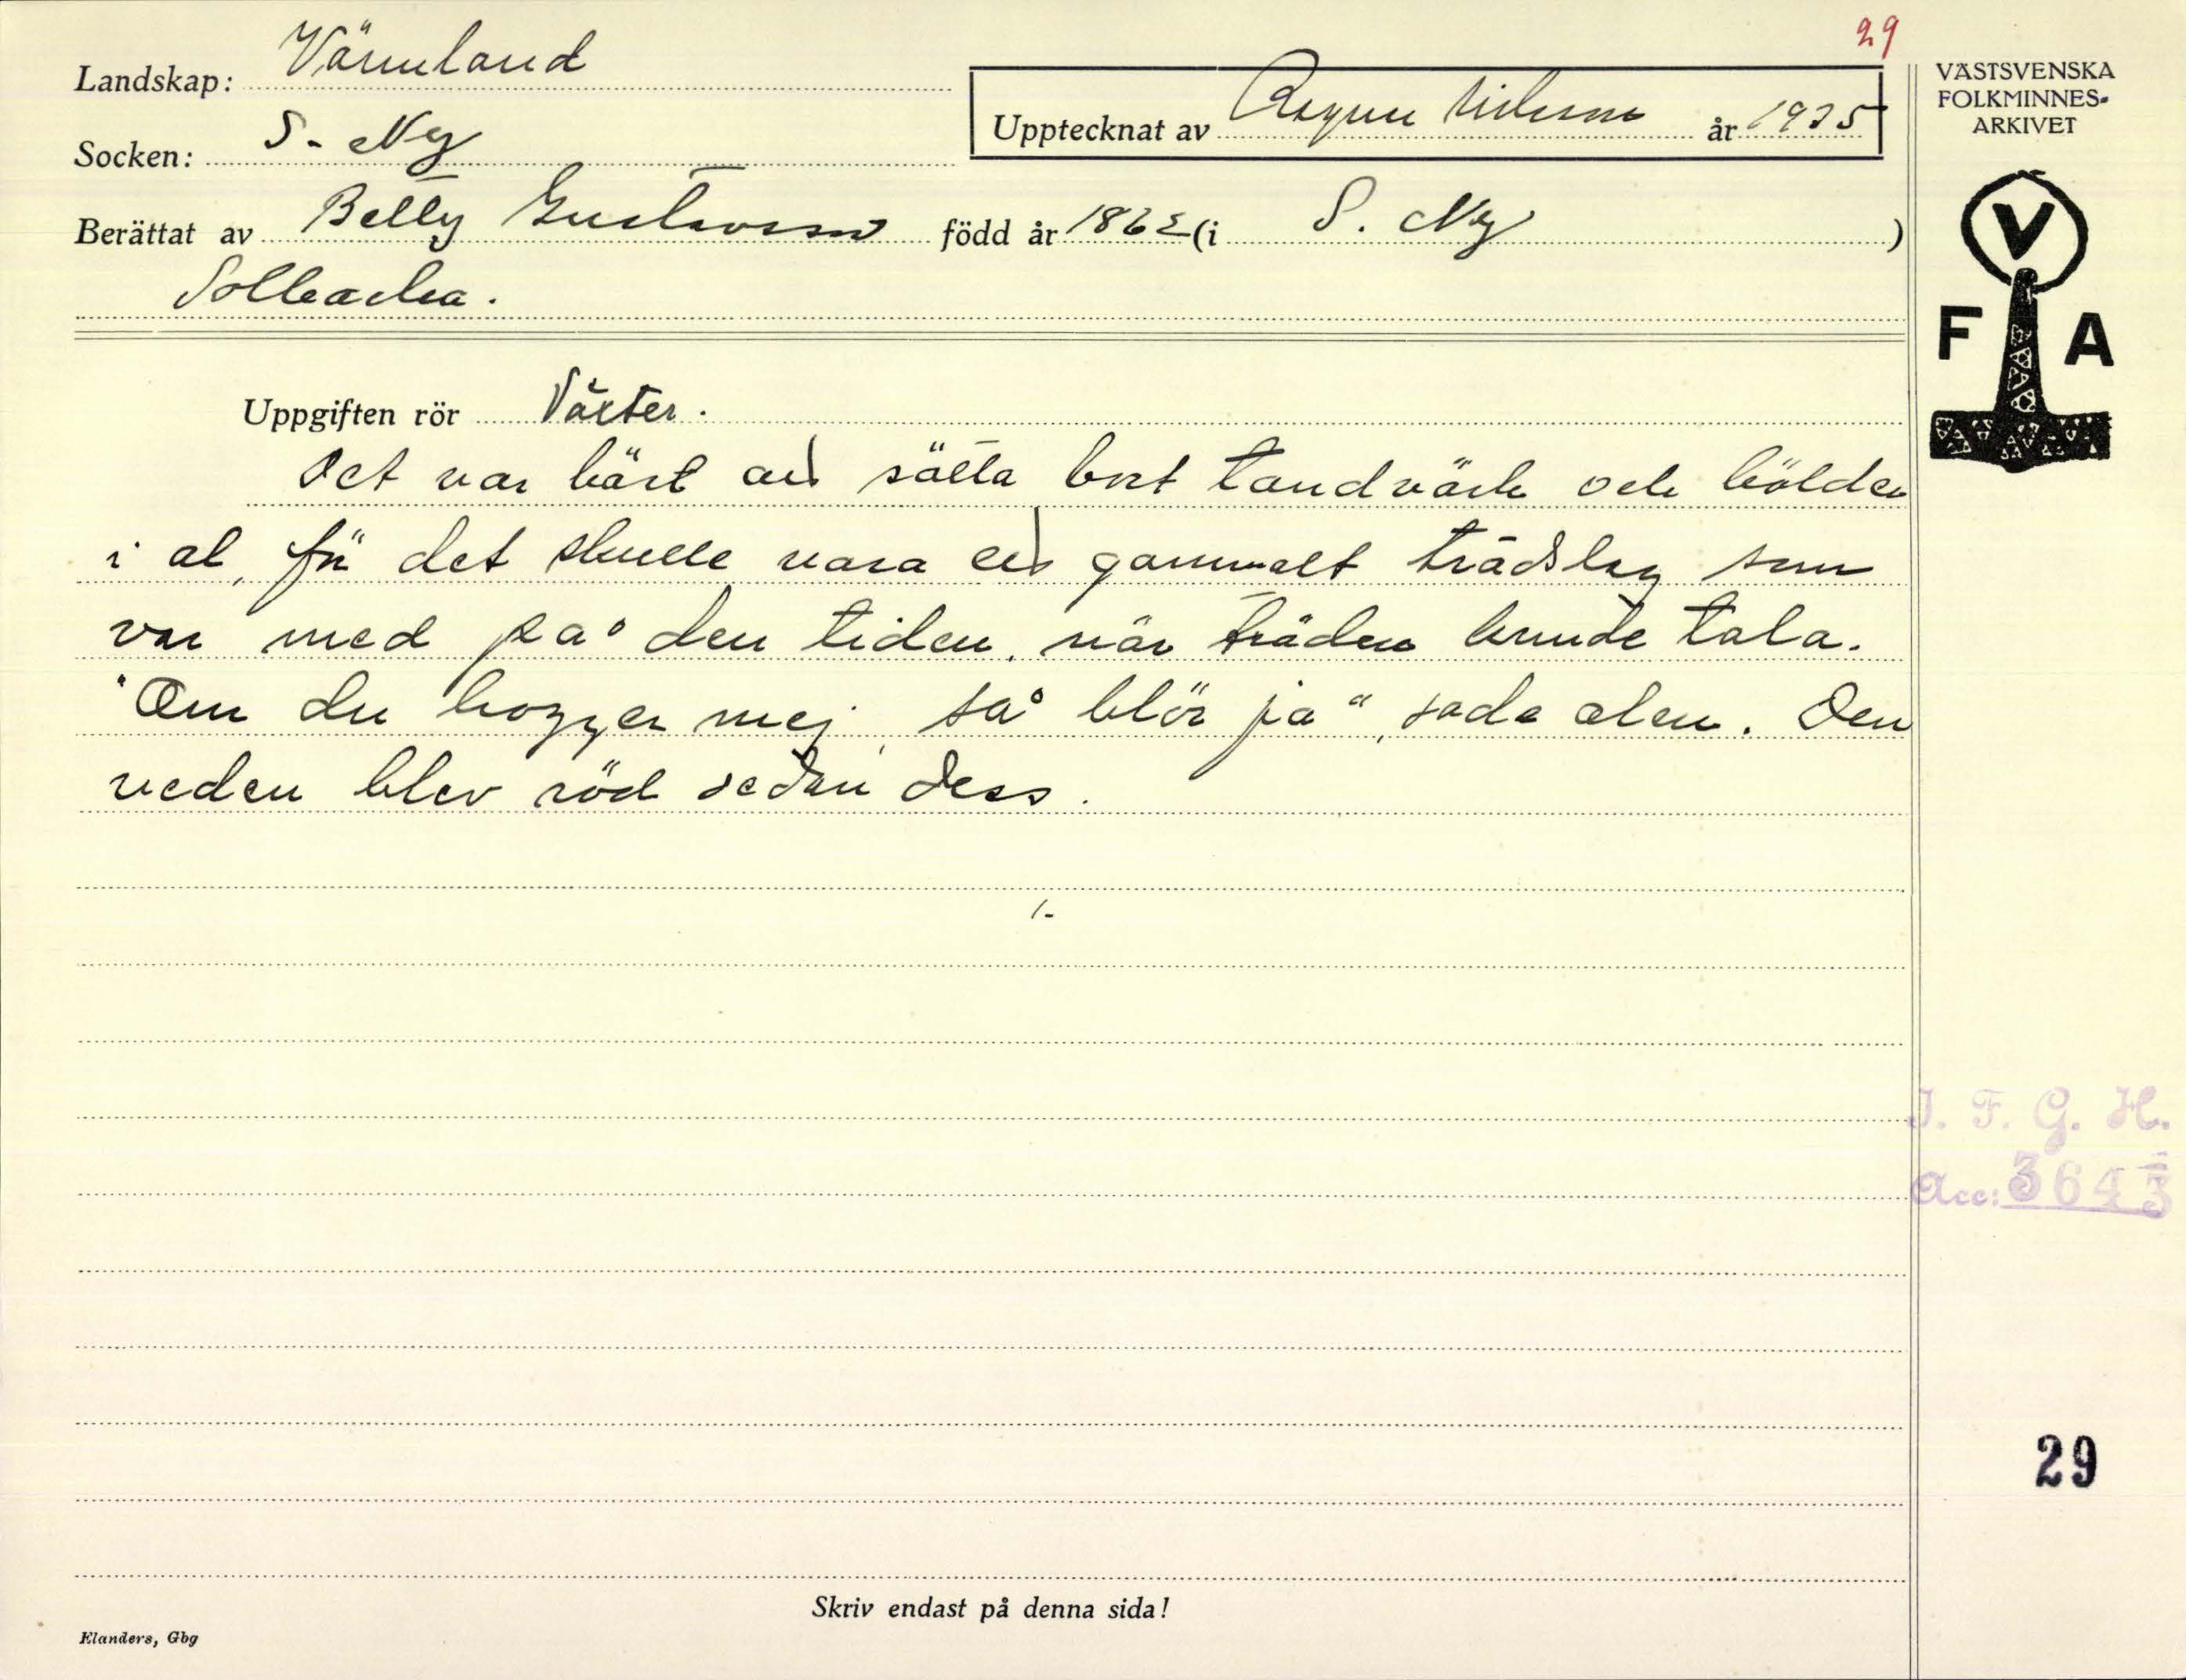 29
Landskap: Värmland
Upptecknat av Ragnar Nilsson år 1935
Socken: S. Ny
Berättat av Betty Gustavsson född år 1862 (i S. Ny)
Solbacka.
Uppgiften rör Växter.
Det var bäst att sätta bort tandvärk och bölder
i al, för det skulle vara ett gammalt trädslag som
var med på den tiden, när träden kunde tala.
"Om du hogger mej, så blör ja", sade alen. Den
veden blev röd sedan dess.
/-
VÄSTSVENSKA
FOLKMINNES-
ARKIVET
V
F A
I. F. G. H.
Acc: 3643
29
Skriv endast på denna sida!
Elanders, Gbg